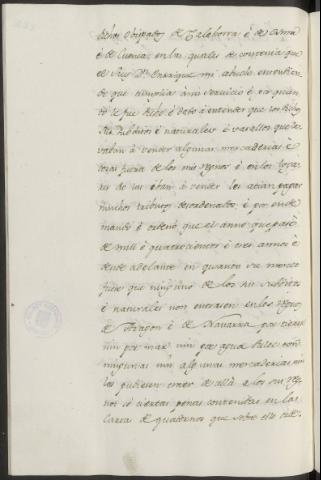 dichos Obispados de Calahorra é de Osma
é de Cuenca, en las quales se contenia que
el Rey Dn. Enrique mi abuelo, entendien-
do que cumplia á su servicio, é por quan-
to le fue dicho é dado á entender que los dichos
sus subditos é naturales é vasallos que lle-
vaban á vender algunas mercaderias é
cosas fuera de los mis regnos é en los logares
do las iban á vender les facian pagar
muchos tributos desordenados, é por ende
mandó é ordenó que el anno que pasó
de mill é quatrocientos é tres annos é
dende adelante en quanto su merced
fuese que ninguno de los sus subditos
é naturales non entrasen en los regnos
de Aragon é de Navarra por tierra
nin por mar nin por agua dulce con
ningunas nin algunas mercaderias nin
las pudiesen traer de allá á los sus reg-
nos só ciertas penas contenidas en las
cartas de quadernos que sobre ello